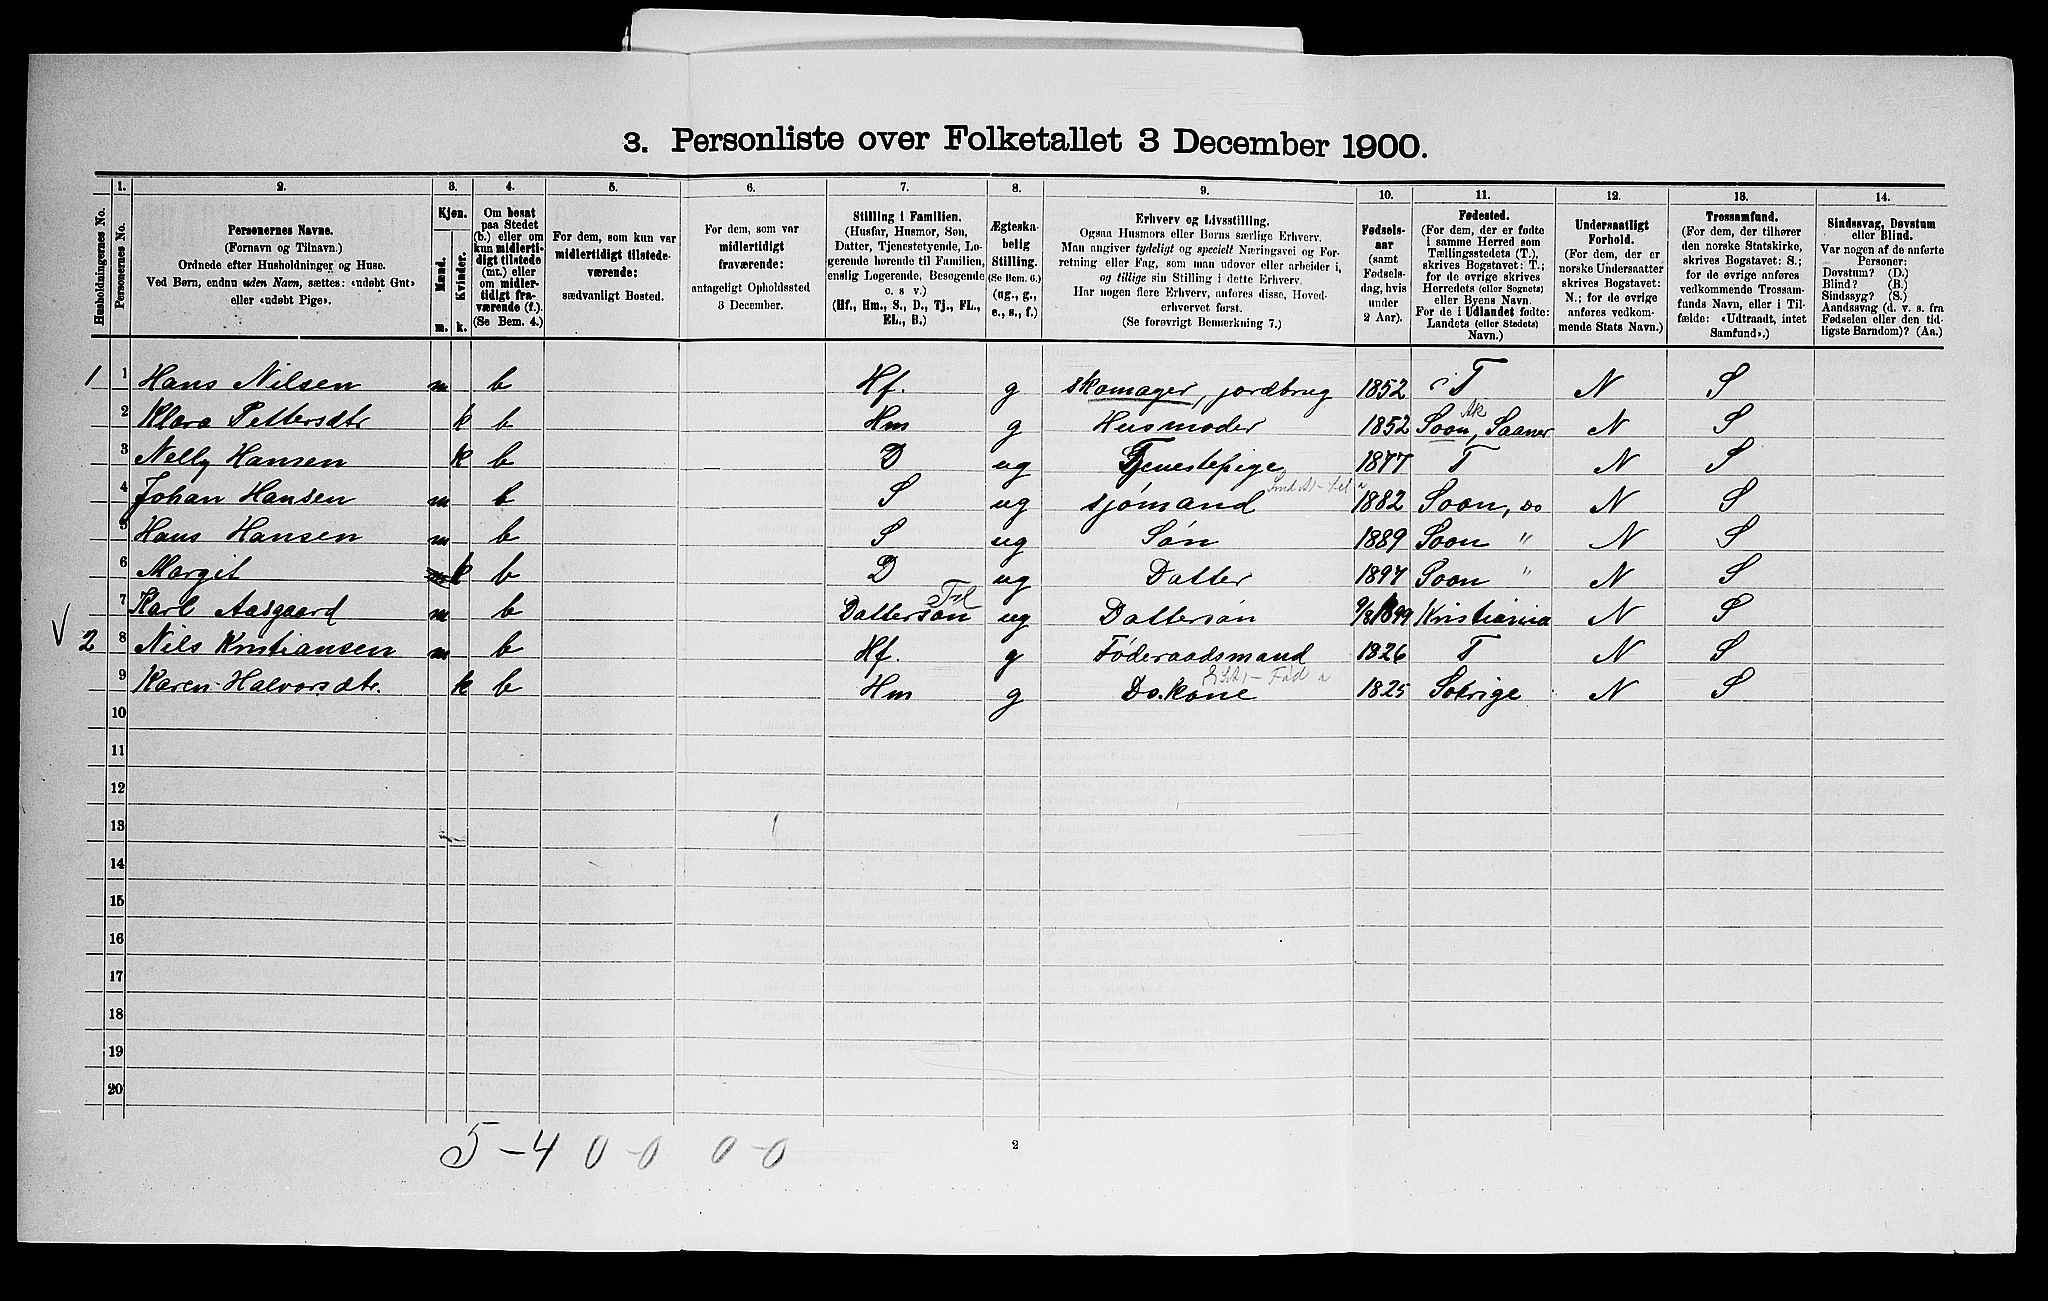 3. Personliste over Folketallet 3 December 1900.
1. 2. 3. 4. 5. 6. 7. 8. 9. 10. 11. 12. 13. 14.
Husholdningernes No.
Personernes No.
Personernes Navne.
(Fornavn og Tilnavn.)
Ordnede efter Husholdninger og Huse.
Ved Børn, endnu uden Navn, sættes: «udøbt Gut»
eller «udøbt Pige».
Kjøn.
Mænd.
Kvinder.
m. k.
Om bosat
paa Stedet
(b.) eller om
kun midlerti-
digt tilstede
(mt.) eller
om midler-
tidigt fra-
værende (f.)
(Se Bem. 4.)
For dem, som kun var
midlertidigt tilstede-
værende:
sædvanligt Bosted.
For dem, som var
midlertidigt
fraværende:
antageligt Opholdssted
3 December.
Stilling i Familien.
(Husfar, Husmor, Søn,
Datter, Tjenestetyende, Lo-
gerende hørende til Familien,
enslig Logerende, Besøgende
o. s v.)
(Hf., Hm., S., D., Tj., FL.,
EL., B.)
Ægteska-
belig
Stilling.
(Se Bem. 6.)
(ug., g.,
e., s., f.)
Erhverv og Livsstilling.
Ogsaa Husmors eller Børns særlige Erhverv.
Man angiver tydeligt og specielt Næringsvei og For-
retning eller Fag, som man udøver eller arbeider i,
og tillige sin Stilling i dette Erhverv.
Har nogen flere Erhverv, anføres disse, Hoved-
erhvervet først.
(Se forøvrigt Bemærkning 7.)
Fødsels-
aar
(samt
Fødsels-
dag, hvis
under
2 Aar).
Fødested.
(For dem, der er fødte
i samme Herred som
Tællingsstedets (T.),
skrives Bogstavet: T.;
for de øvrige skrives
Herredets (eller Sognets)
eller Byens Navn.
For de i Udlandet fødte:
Landets (eller Stedets)
Navn.)
Undersaatligt
Forhold.
(For dem, der er
norske Undersaatter
skrives Bogstavet:
N.; for de øvrige
anføres vedkom-
mende Stats Navn.)
Trossamfund.
(For dem, der tilhører
den norske Statskirke,
skrives Bogstavet: S.;
for de øvrige anføres
vedkommende Trossam-
funds Navn, eller i Til-
fælde: «Udtraadt, intet
Samfund».)
Sindssvag, Døvstum
eller Blind.
Var nogen af de anførte
Personer:
Døvstum? (D.)
Blind? (B.)
Sindssyg? (S.)
Aandssvag (d. v. s. fra
Fødselen eller den tid-
ligste Barndom)? (Aa.)
1 1 Hans Nilsen m b Hf. g skomager, jordbrug 1852 T N S
Ak
2 Klara Pettersdtr k b Hm g Husmoder 1852 Soon, Saaner N S
3 Nelly Hansen k b D ug Tjenestepige 1877 T N S
4 Johan Hansen m b S ug sjømand 1882 Soon, do N S
5 Hans Hansen m b S ug Søn 1889 Soon " N S
6 Margit m k b D ug Datter 1897 Soon " N S
7 Karl Aasgaard m b Dattersøn ug Dattersøn 9/8 1899 Kristiania N S
V 2 8 Nils Kristiansen m b Hf. g Føderaadsmand 1826 T N S
9 Karen Halvorsdtr. k b Hm g Do. kone 1825 Sverige N S
10
11
12
13
14
15
16
17
18
19
20
5-4 0-0 0-0
2